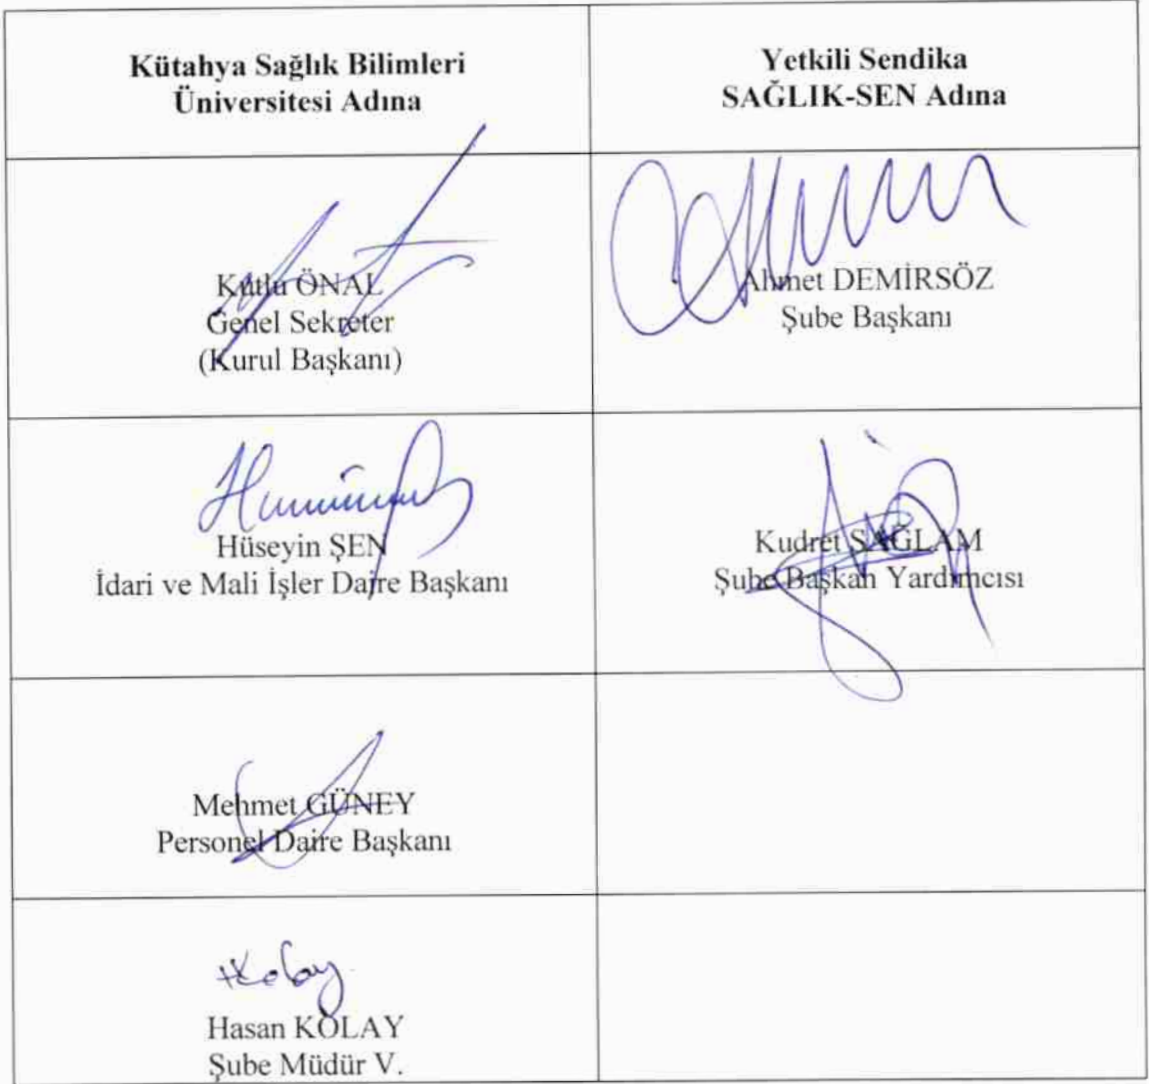 Kütahya Sağlık Bilimleri
Üniversitesi Adına
Yetkili Sendika
SAĞLIK-SEN Adına
Kutlu ÖNAL
Genel Sekreter
(Kurul Başkanı)
Ahmet DEMİRSÖZ
Şube Başkanı
Hüseyin ŞEN
İdari ve Mali İşler Daire Başkanı
Kudret SAĞLAM
Şube Başkan Yardımcısı
Mehmet GÜNEY
Personel Daire Başkanı
HKolay
Hasan KOLAY
Şube Müdür V.